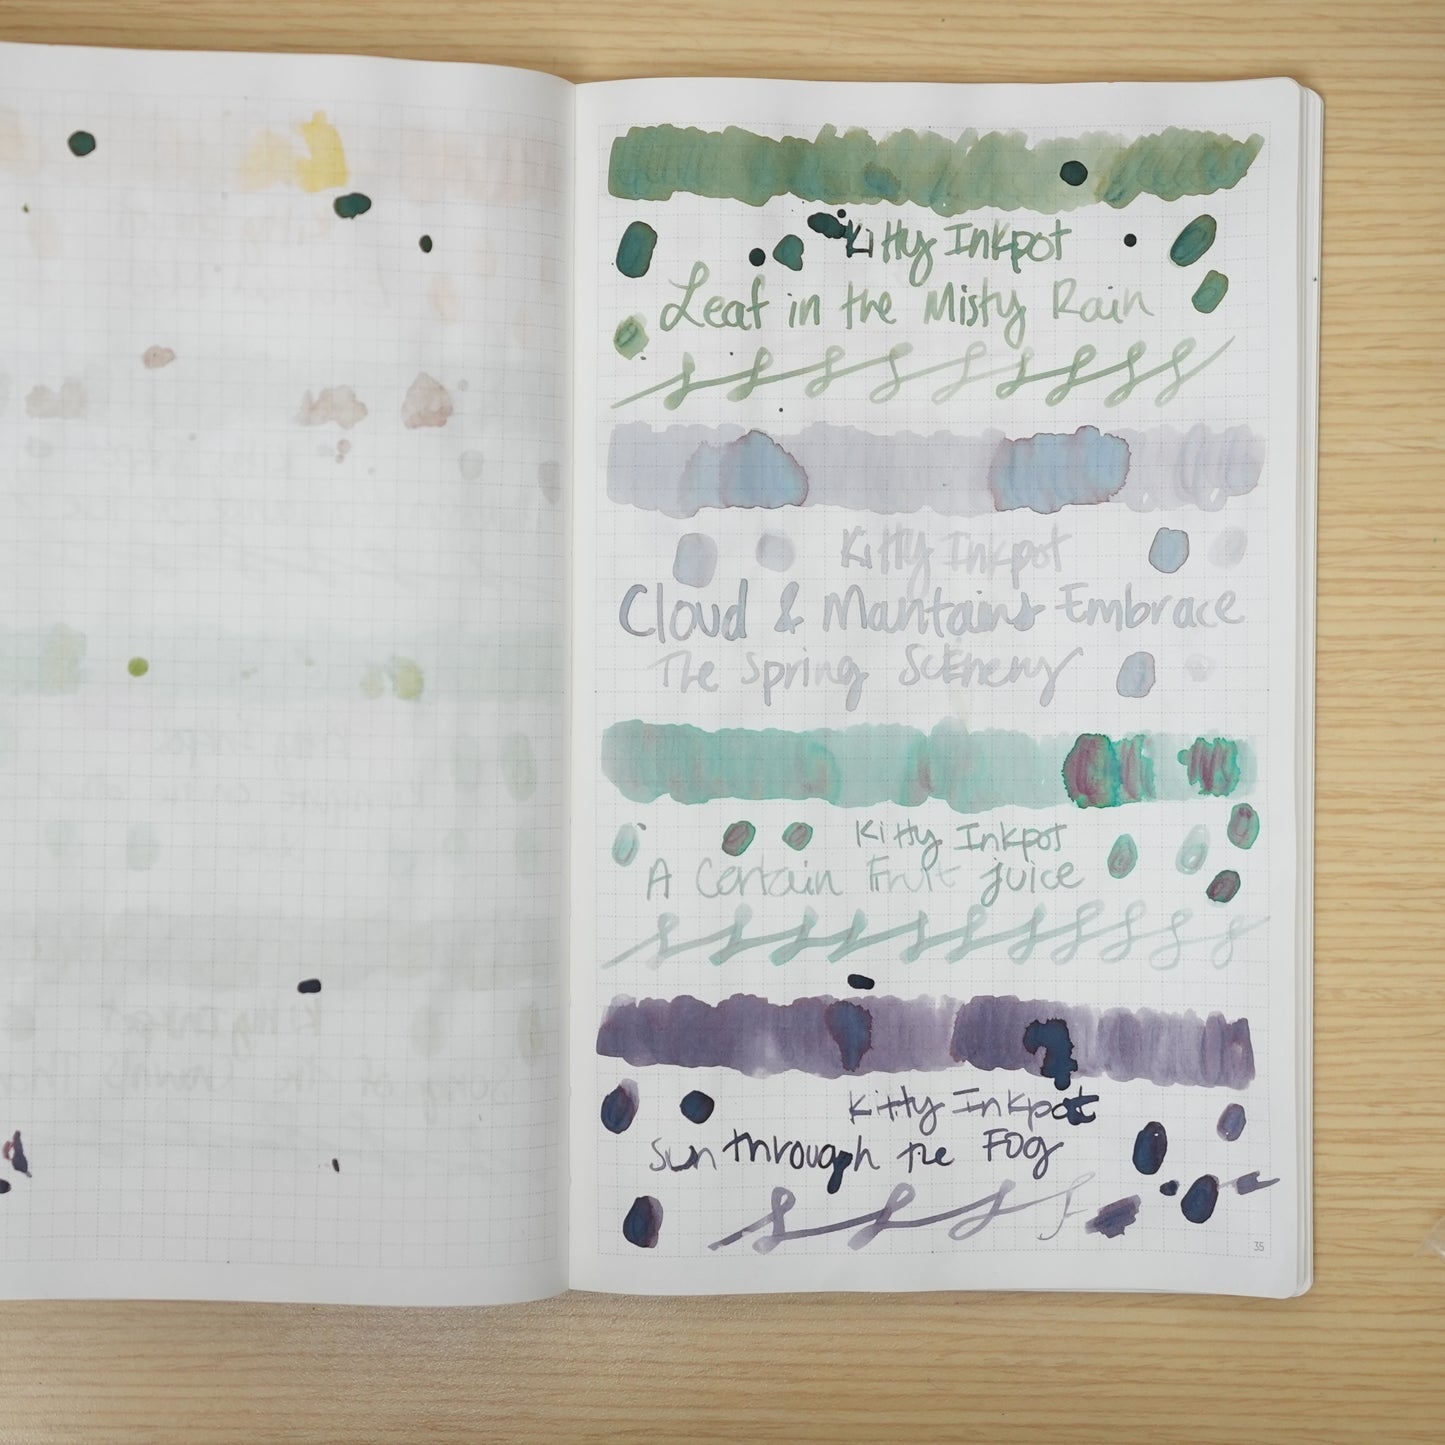 Kitty Inkpot
Leaf in the Misty Rain
Kitty Inkpot
Cloud & Mantains Embrace
The Spring Scenery
Kitty Inkpot
A Certain Fruit juice
Kitty Inkpot
Sun through the Fog
35